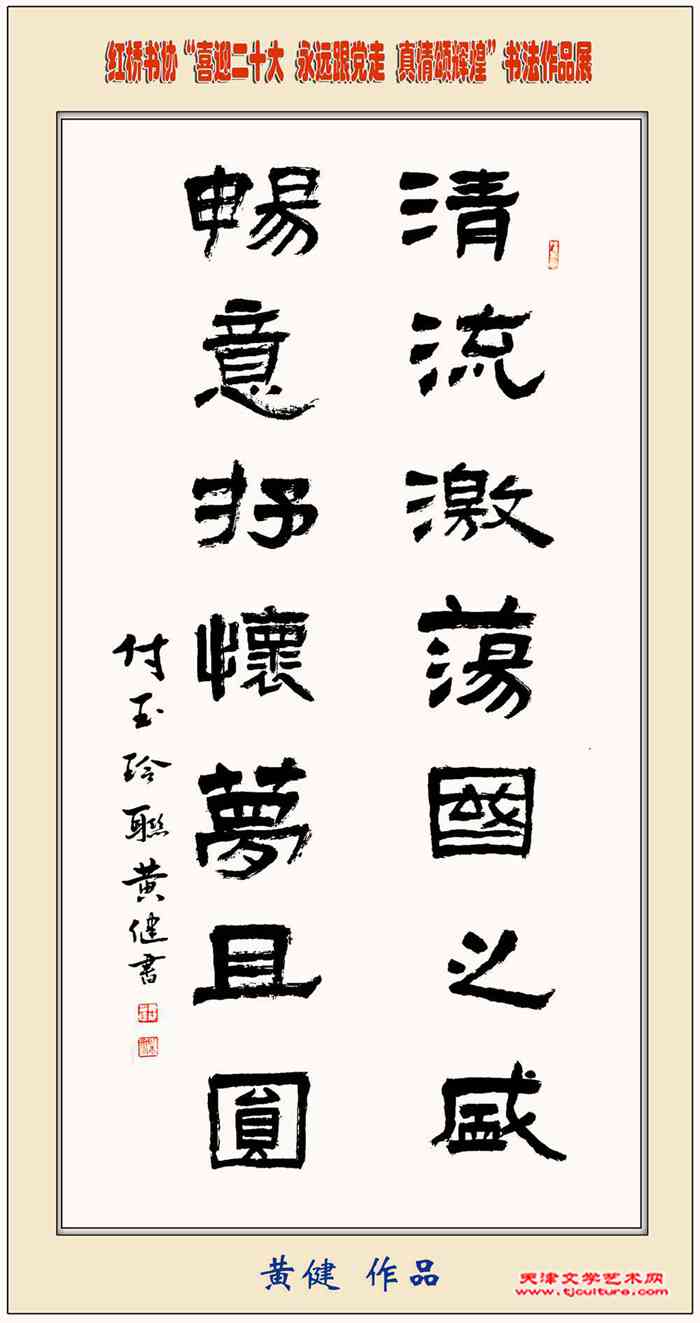 红桥书协“喜迎二十大 永远跟党走 真情颂辉煌”书法作品展
清流激荡國之盛
暢意抒懷夢且圓
付玉玲聯黄健书
黄健 作品
天津文学艺术网
www.tjculture.com